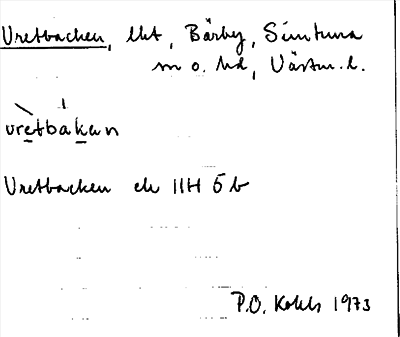 Vretbacken, lht, Bärby, Simtuna
sn o. hd, Västm. l.
vretbakan
Vretbacken ek 11H 5b
P.O. Kohls 1973